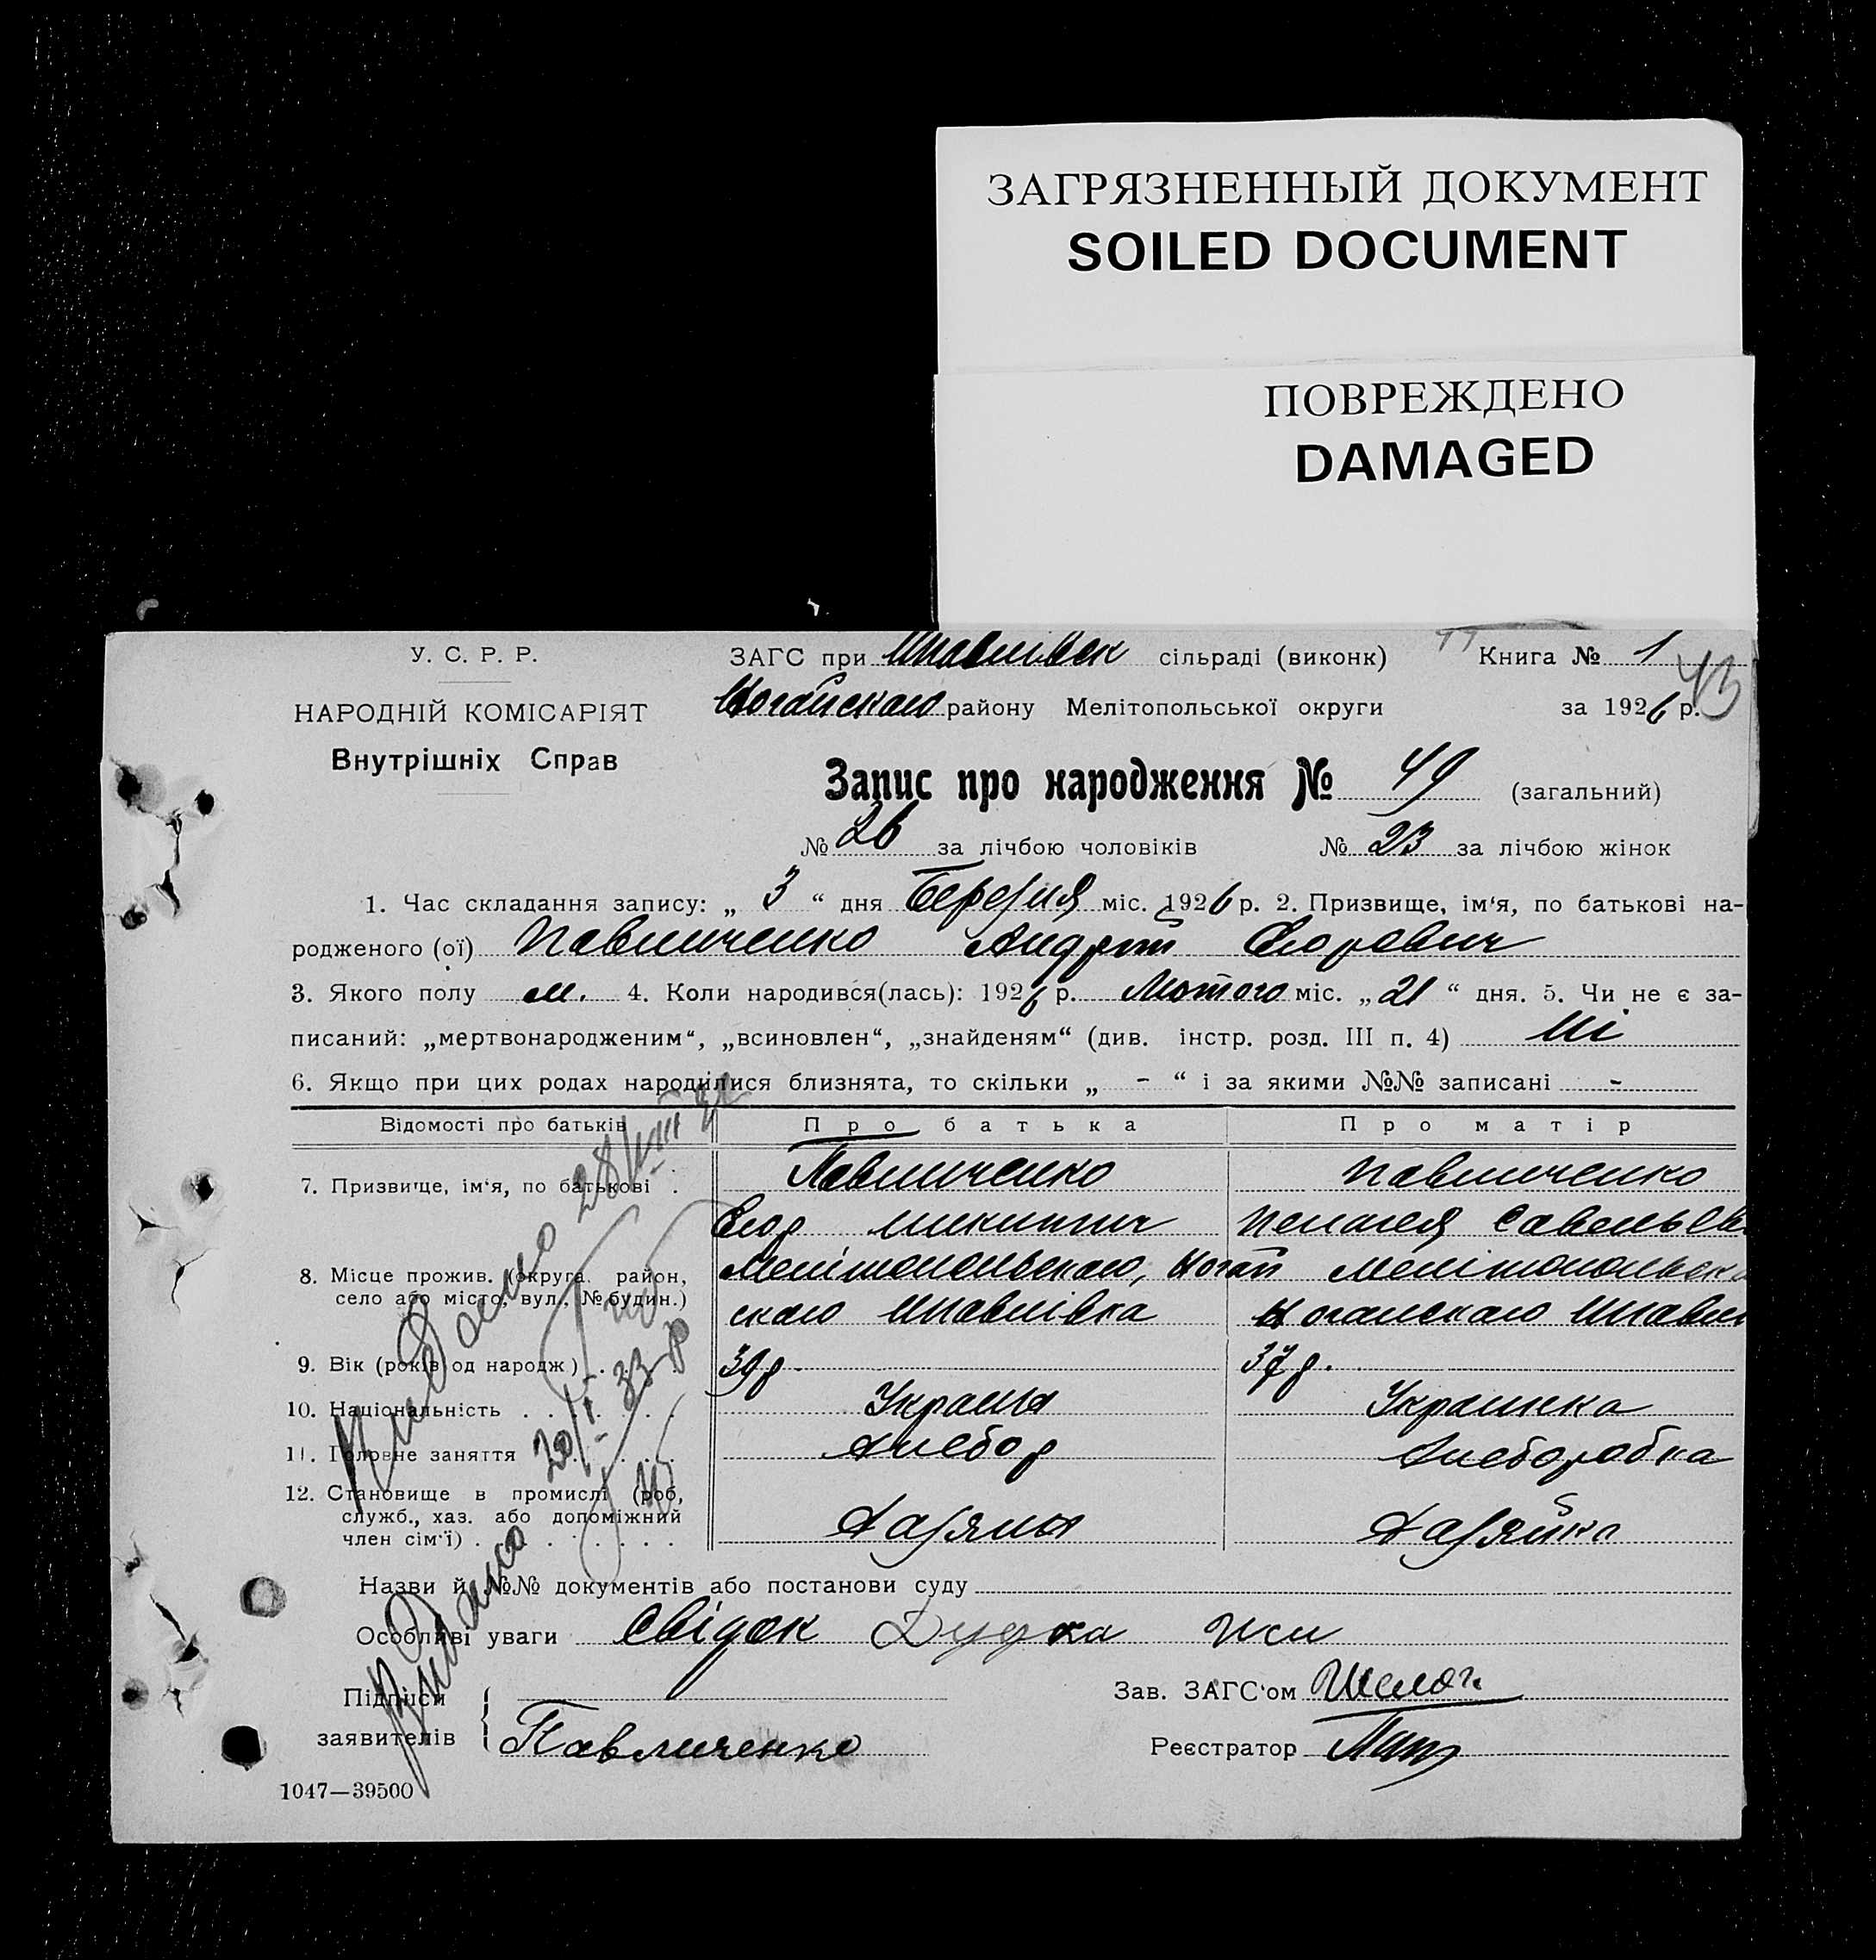 ЗАГРЯЗНЕННЫЙ ДОКУМЕНТ
SOILED DOCUMENT
ПОВРЕЖДЕНО
DAMAGED
У. С. Р. Р.
НАРОДНІЙ КОМІСАРІЯТ
Внутрішніх Справ
ЗАГС при сільраді (виконк) Книга № 1
43
Ногайскаго району Мелітопольської округи за 1926 р.
Запис про народження № 49 (загальний)
№ 26 за лічбою чоловіків № 23 за лічбою жінок
1. Час складання запису: „ 3 “ дня Березня міс. 1926 р. 2. Призвище, ім‘я, по батькові на-
родженого (ої) Павличенко Андрій Єгорович
3. Якого полу м. 4. Коли народився(лась): 1926 р. Лютого міс. „ 21 “ дня. 5. Чи не є за-
писаний: „мертвонародженим“, „всиновлен“, „знайденям“ (див. інстр. розд. III п. 4) Ні
6. Якщо при цих родах народилися близнята, то скільки „ - “ і за якими №№ записані -
Відомості про батьків Про батька Про матір
7. Призвище, ім‘я, по батькові . Павличенко Павличенко
Єгор Микитич Пелагея Савельев
8. Місце прожив. (округа, район, Мелітопольскаго, Ногай Мелітопольск
село або місто, вул., № будин.) скаго Ногайскаго
9. Вік (років од народж.) . . . 39 р. 37 р.
10. Національність . . . . . . . Украинка
11. Головне заняття . . . . . . Хлебор Хлеборобка
12. Становище в промислі (роб,
служб., хаз. або допоміжний
член сім‘ї) . . . . . . . . Хазяин Хазяйка
Назви й №№ документів або постанови суду
Особливі уваги Свідок Дудка
Підписи
заявителів Павличенко
Зав. ЗАГС‘ом
Реєстратор
1047—39500
Видано
Видано